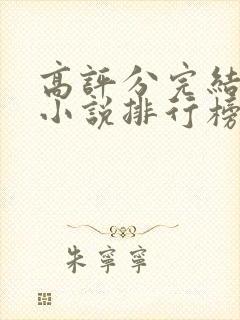 高評分完結
小說排行榜
朱寧寧